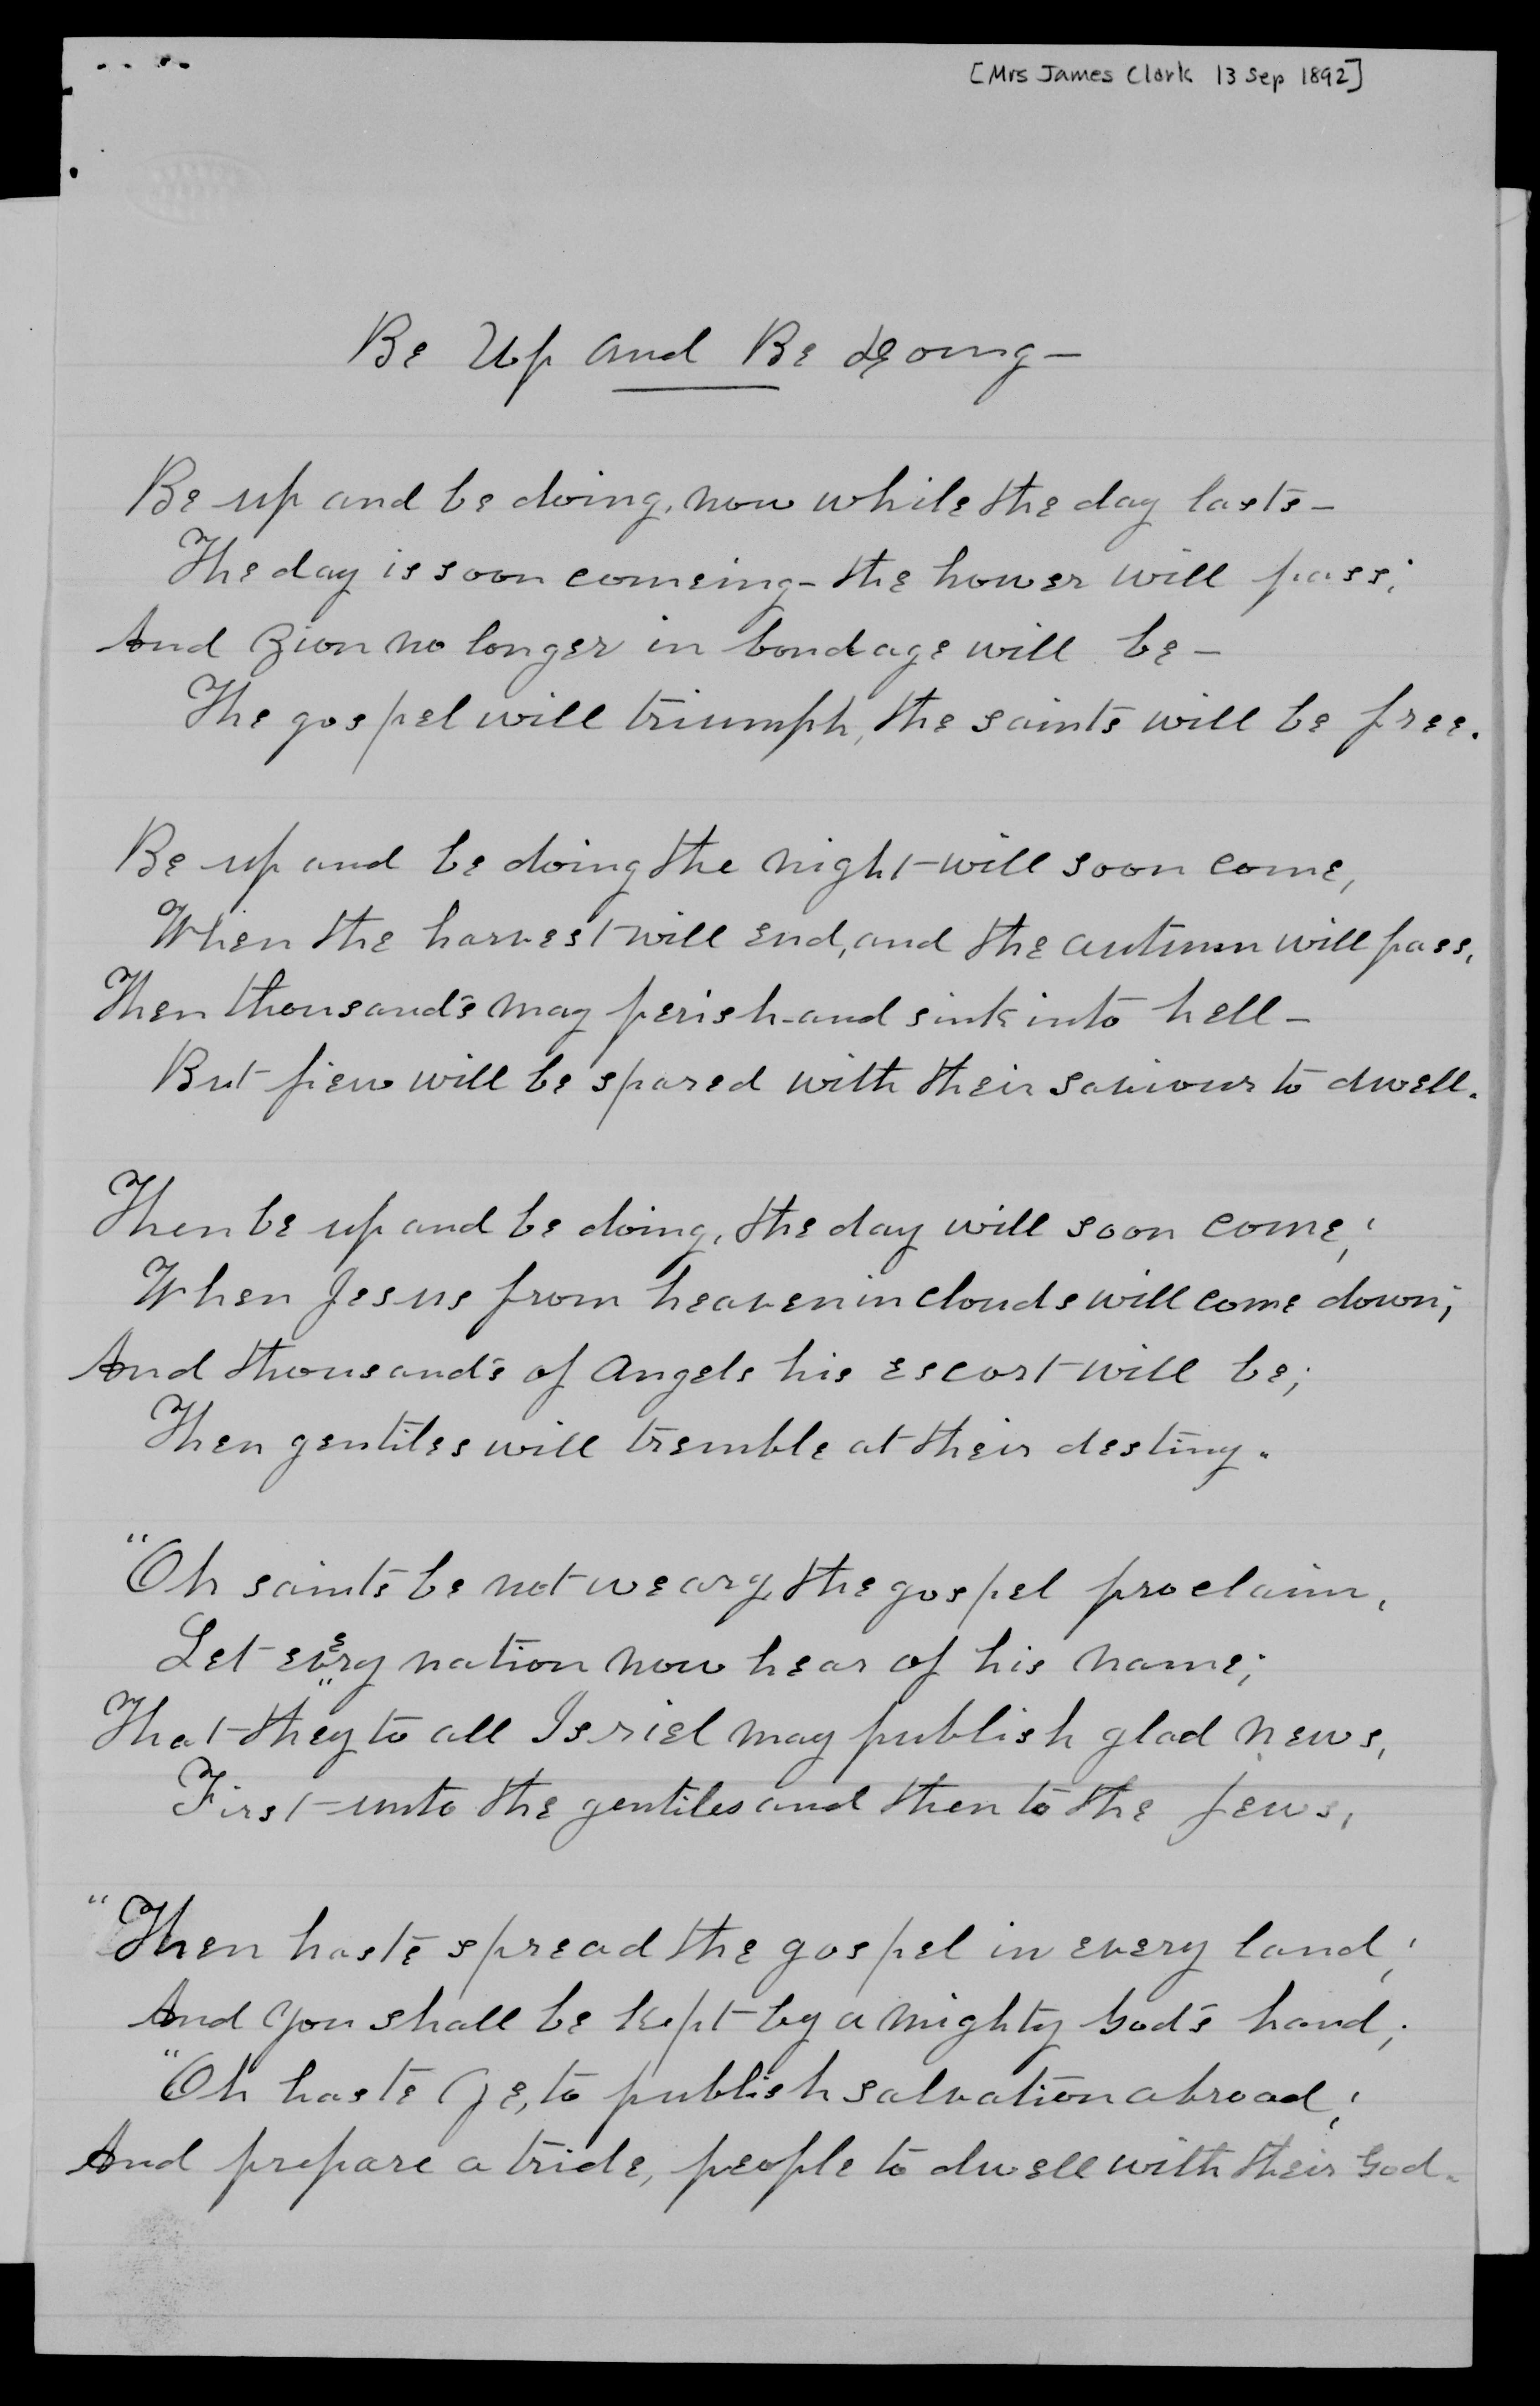 [Mrs James Clark 13 Sep 1892]
Be Up and Be doing-
Be up and be doing, now while the day lasts-
The day is soon comeing- the hower will pass;
And Zion no longer in bondage will be-
The gospel will triumph, the saints will be free.
Be up and be doing the night will soon come,
When the harvest will end, and the autumn will pass,
Then thousands may perish and sink into hell-
But fiew will be spared with their saviour to dwell.
Then be up and be doing, the day will soon come;
When Jesus from heaven in clouds will come down;
And thousands of Angels his escort will be;
Then gentiles will tremble at their destiny.
"Oh saints be not weary, the gospel proclaim,
Let every nation now hear of his name;
That they to all Isriel may publish glad news,
First unto the gentiles and then to the Jews,
"Then haste spread the gospel in every land;
And you shall be kept by a mighty God's hand;
"Oh haste ye, to publish salvation abroad;
And prepare a tride, people to dwell with their God.